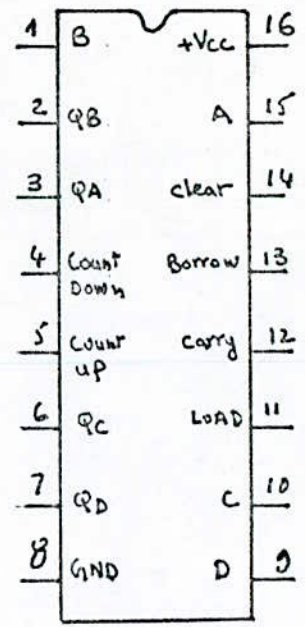 1 B +Vcc 16
2 QB A 15
3 QA clear 14
4 Count Borrow 13
Down
5 Count Carry 12
up
6 QC LOAD 11
7 QD C 10
8 GND D 9